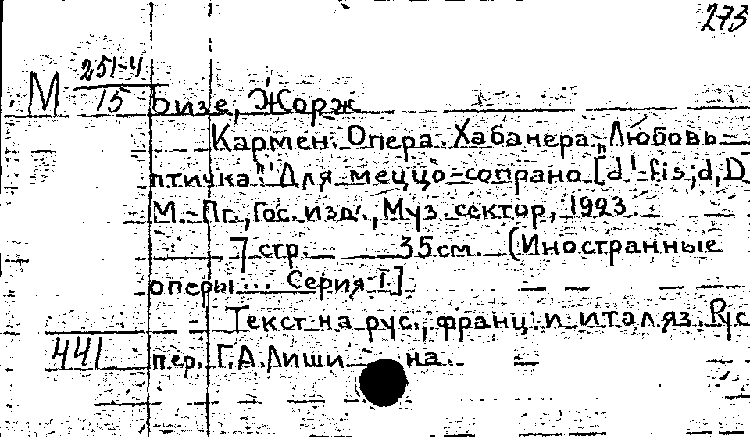 273
М 251-4
15 Бизе, Жорж
Кармен. Опера. Хабанера „Любовь-
птичка". Для меццо-сопрано [d'-fis; d, D
М.-Пг., Гос. изд., Муз. сектор, 1923.
7 стр. 35 см. (Иностранные
оперы... Серия I.]
Текст на рус., франц. и итал. яз. Рус
441 пер. Г.А. Лиши на.